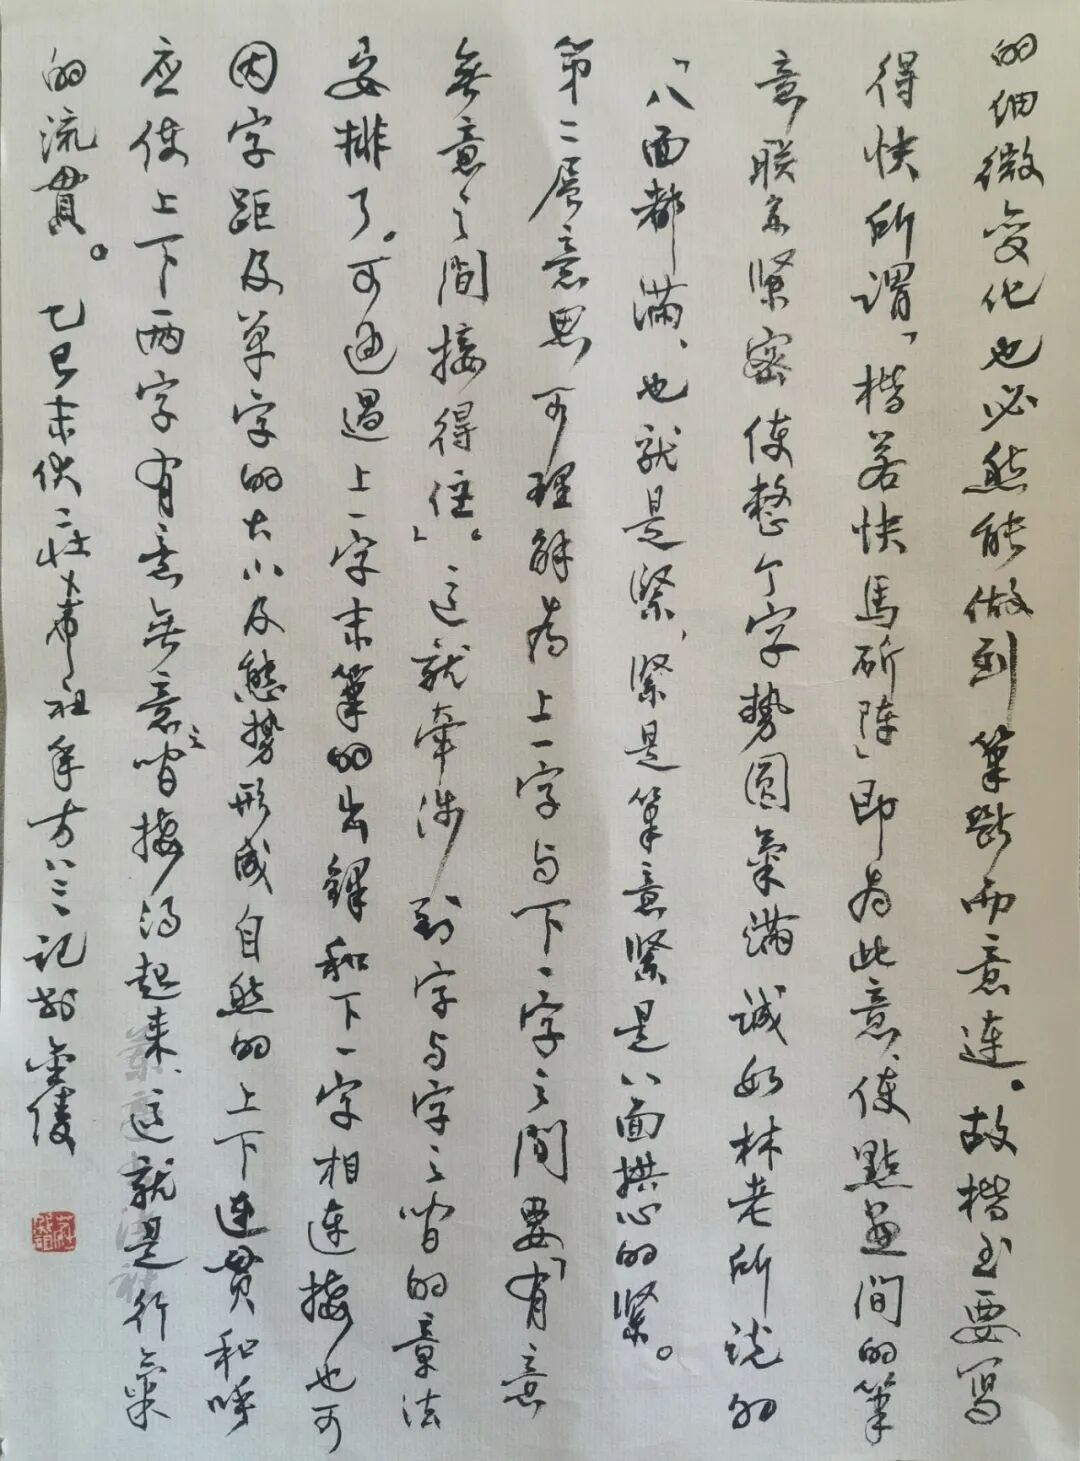 的细微变化也必然能做到筆斷而意连。故楷书要写
得快所谓「楷若快馬斫阵」即为此意、使點画间的筆
意联系紧密使整个字势圆氣满诚如林老所说的
「八面都满、也就是紧、紧是筆意紧是八面拱心的紧。
第二层意思可理解为上一字与下一字之間要「有意
無意之間接得住」。这就牵涉到字与字之间的章法
安排了。可通過上一字末筆的出鋒和下一字相连接也可
因字距及单字的大小及態势形成自然的上下连貫和呼
应使上下两字有意無意之间接得起来、这就是行氣
的流貫。 乙巳末伏 祖年方八三记於金陵